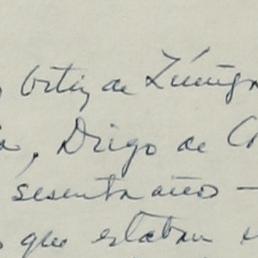 Ortiz de Zúñiga
, Diego de
sesenta años —
que estaban